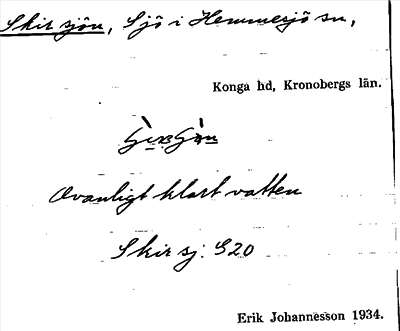 Skir sjön, Sjö i Hemmesjö sn,
Konga hd, Kronobergs län.
Ovanligt klart vatten
Skir sj: G20
Erik Johannesson 1934.